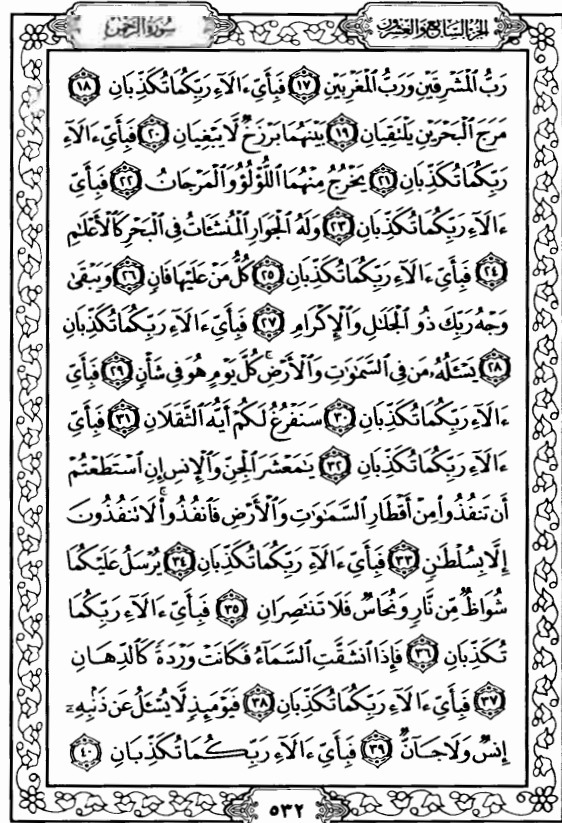 سُورَةُ الرَّحْمَٰن
الجُزْءُ السَّابِعُ وَالعِشْرُونَ
رَبُّ ٱلْمَشْرِقَيْنِ وَرَبُّ ٱلْمَغْرِبَيْنِ ١٧ فَبِأَيِّ ءَالَآءِ رَبِّكُمَا تُكَذِّبَانِ ١٨
مَرَجَ ٱلْبَحْرَيْنِ يَلْتَقِيَانِ ١٩ بَيْنَهُمَا بَرْزَخٌ لَّا يَبْغِيَانِ ٢٠ فَبِأَيِّ ءَالَآءِ
رَبِّكُمَا تُكَذِّبَانِ ٢١ يَخْرُجُ مِنْهُمَا ٱللُّؤْلُؤُ وَٱلْمَرْجَانُ ٢٢ فَبِأَيِّ
ءَالَآءِ رَبِّكُمَا تُكَذِّبَانِ ٢٣ وَلَهُ ٱلْجَوَارِ ٱلْمُنشَـَٔاتُ فِي ٱلْبَحْرِ كَٱلْأَعْلَٰمِ
٢٤ فَبِأَيِّ ءَالَآءِ رَبِّكُمَا تُكَذِّبَانِ ٢٥ كُلُّ مَنْ عَلَيْهَا فَانٍ ٢٦ وَيَبْقَىٰ
وَجْهُ رَبِّكَ ذُو ٱلْجَلَٰلِ وَٱلْإِكْرَامِ ٢٧ فَبِأَيِّ ءَالَآءِ رَبِّكُمَا تُكَذِّبَانِ
٢٨ يَسْـَٔلُهُۥ مَن فِي ٱلسَّمَٰوَٰتِ وَٱلْأَرْضِ ۚ كُلَّ يَوْمٍ هُوَ فِي شَأْنٍ ٢٩ فَبِأَيِّ
ءَالَآءِ رَبِّكُمَا تُكَذِّبَانِ ٣٠ سَنَفْرُغُ لَكُمْ أَيُّهَ ٱلثَّقَلَانِ ٣١ فَبِأَيِّ
ءَالَآءِ رَبِّكُمَا تُكَذِّبَانِ ٣٢ يَٰمَعْشَرَ ٱلْجِنِّ وَٱلْإِنسِ إِنِ ٱسْتَطَعْتُمْ
أَن تَنفُذُوا۟ مِنْ أَقْطَارِ ٱلسَّمَٰوَٰتِ وَٱلْأَرْضِ فَٱنفُذُوا۟ ۚ لَا تَنفُذُونَ
إِلَّا بِسُلْطَٰنٍ ٣٣ فَبِأَيِّ ءَالَآءِ رَبِّكُمَا تُكَذِّبَانِ ٣٤ يُرْسَلُ عَلَيْكُمَا
شُوَاظٌ مِّن نَّارٍ وَنُحَاسٌ فَلَا تَنتَصِرَانِ ٣٥ فَبِأَيِّ ءَالَآءِ رَبِّكُمَا
تُكَذِّبَانِ ٣٦ فَإِذَا ٱنشَقَّتِ ٱلسَّمَآءُ فَكَانَتْ وَرْدَةً كَٱلدِّهَانِ
٣٧ فَبِأَيِّ ءَالَآءِ رَبِّكُمَا تُكَذِّبَانِ ٣٨ فَيَوْمَئِذٍ لَّا يُسْـَٔلُ عَن ذَنۢبِهِۦٓ
إِنسٌ وَلَا جَآنٌّ ٣٩ فَبِأَيِّ ءَالَآءِ رَبِّكُمَا تُكَذِّبَانِ ٤٠
٥٣٢